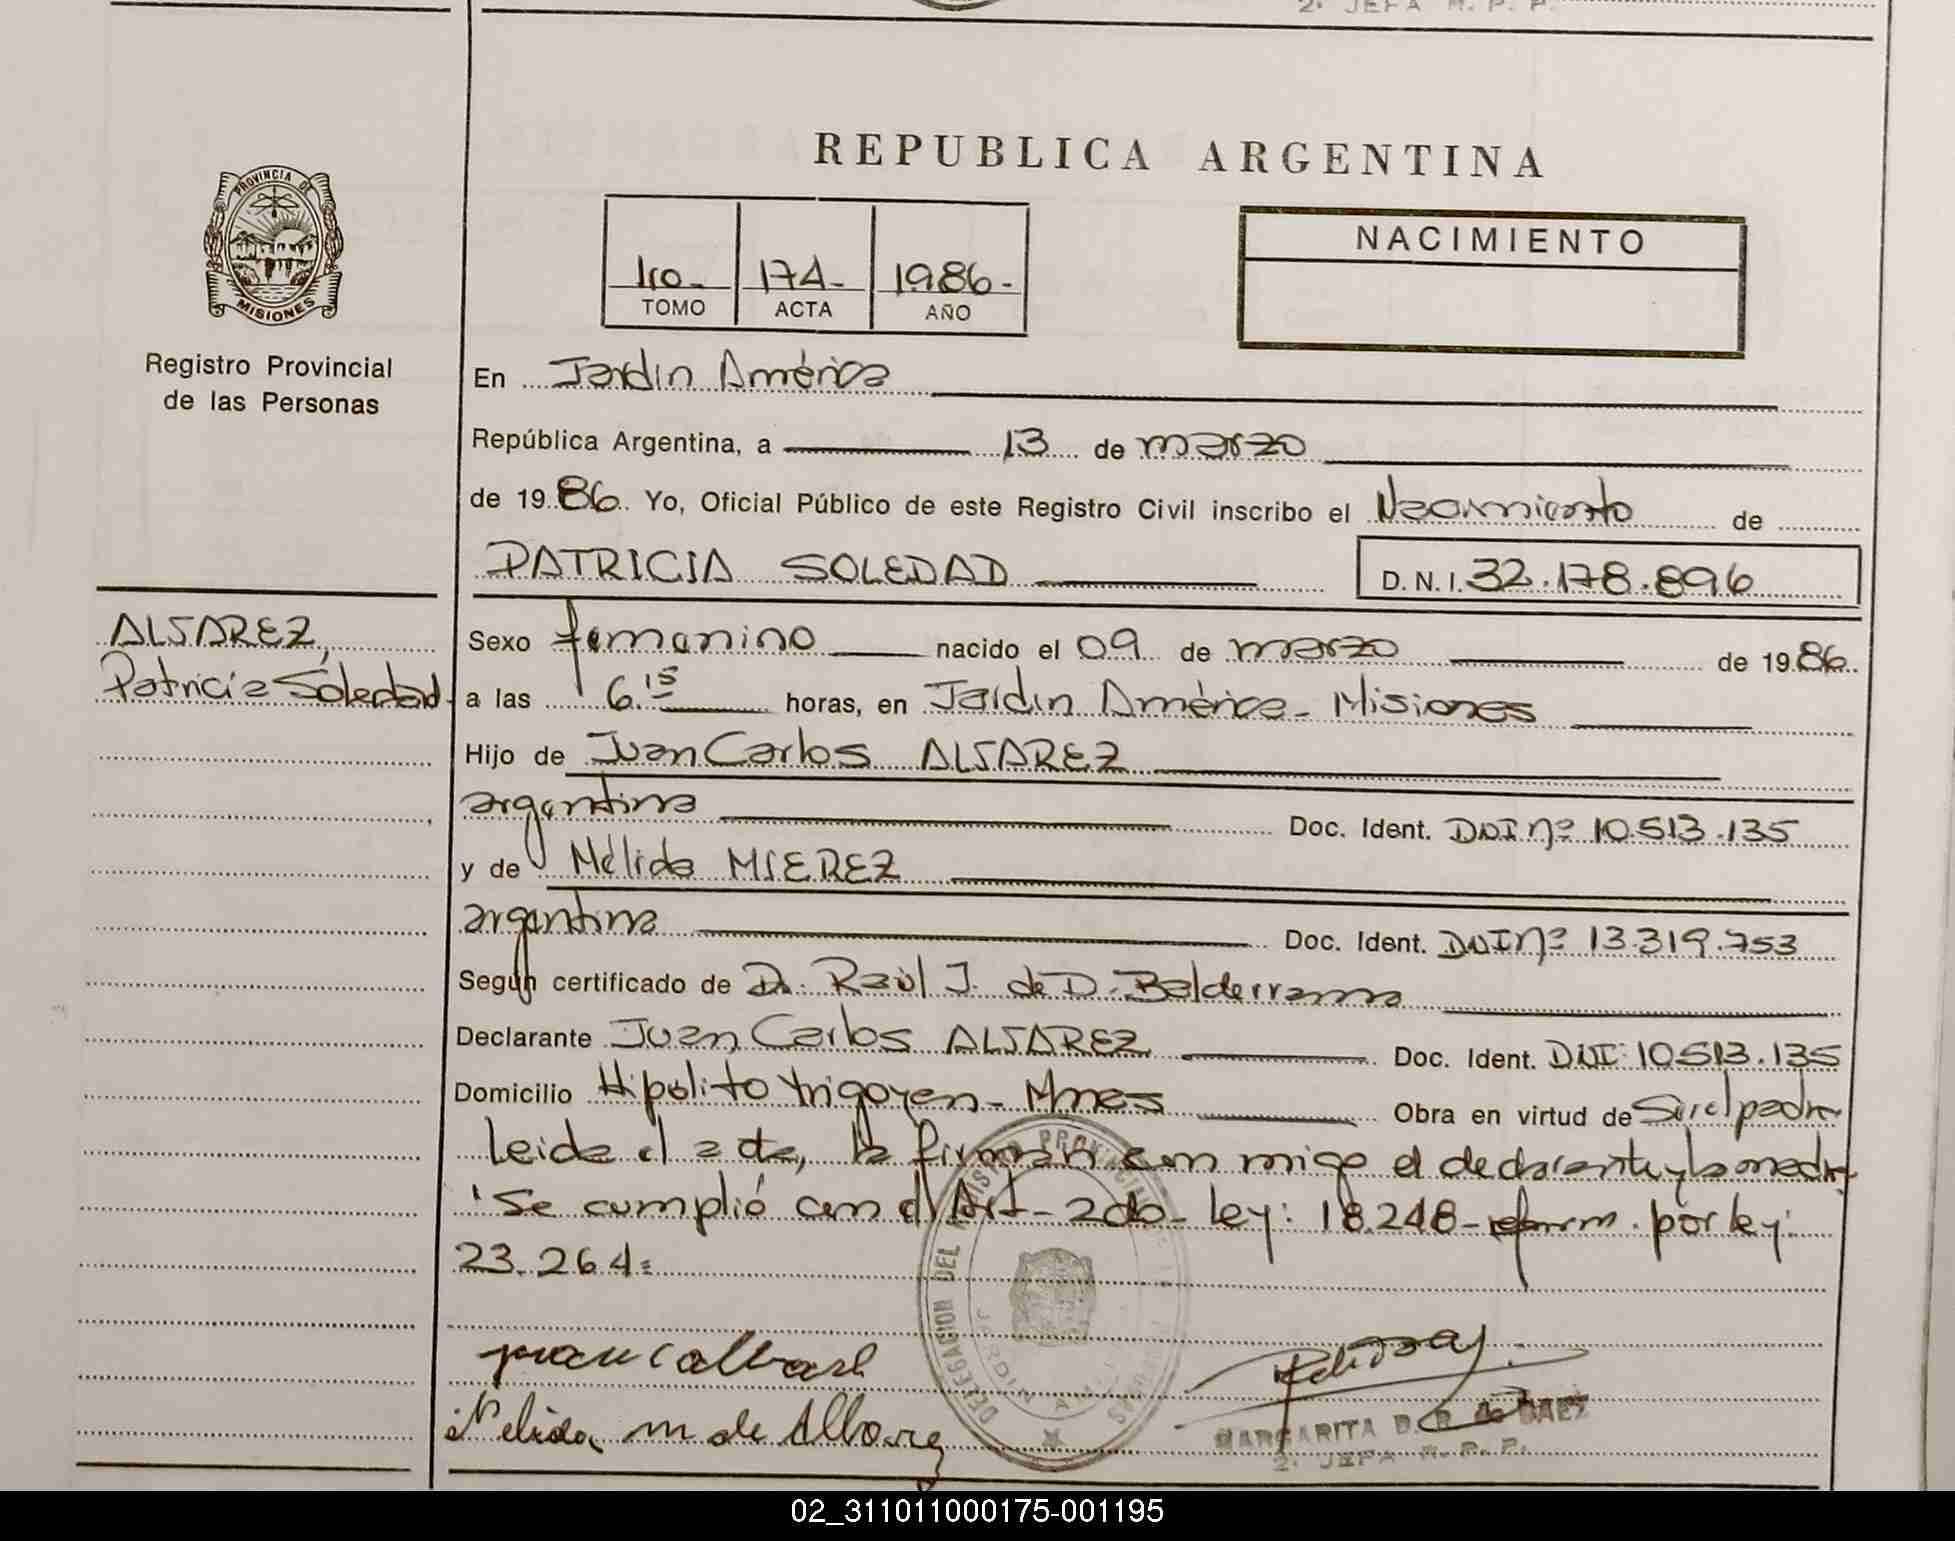 2. JEFA R. P. P.
REPUBLICA ARGENTINA
PROVINCIA DE
MISIONES
Registro Provincial
de las Personas
1ro-
TOMO
174-
ACTA
1986-
AÑO
NACIMIENTO
En Jardin América
República Argentina, a 13 de marzo
de 1986 Yo, Oficial Público de este Registro Civil inscribo el Nacimiento de
PATRICIA SOLEDAD D.N.I. 32.178.896
ALVAREZ,
Patricia Soledad
Sexo femenino nacido el 09 de marzo de 1986
a las 6.15 horas, en Jardin América - Misiones
Hijo de Juan Carlos ALVAREZ
argentina Doc. Ident. DNI nº 10.513.135
y de Nélida MIEREZ
argentina Doc. Ident. DNI nº 13.319.753
Según certificado de Dr. Raúl J. de D. Balderrama
Declarante Juan Carlos ALVAREZ Doc. Ident. DNI: 10513.135
Domicilio Hipólito Yrigoyen - Mnes Obra en virtud de Ser el padre
Leida el acta, la firman con migo el declarante y la madre
"Se cumplió con el Art- 2do- ley: 18.248- reform. por ley:
23.264=
DELEGACION DEL REGISTRO PROVINCIAL DE LAS PERSONAS
JARDIN AMERICA
Nelida M de Alvarez
MARGARITA B. R. de BAEZ
2. JEFA R. P. P.
02_311011000175-001195